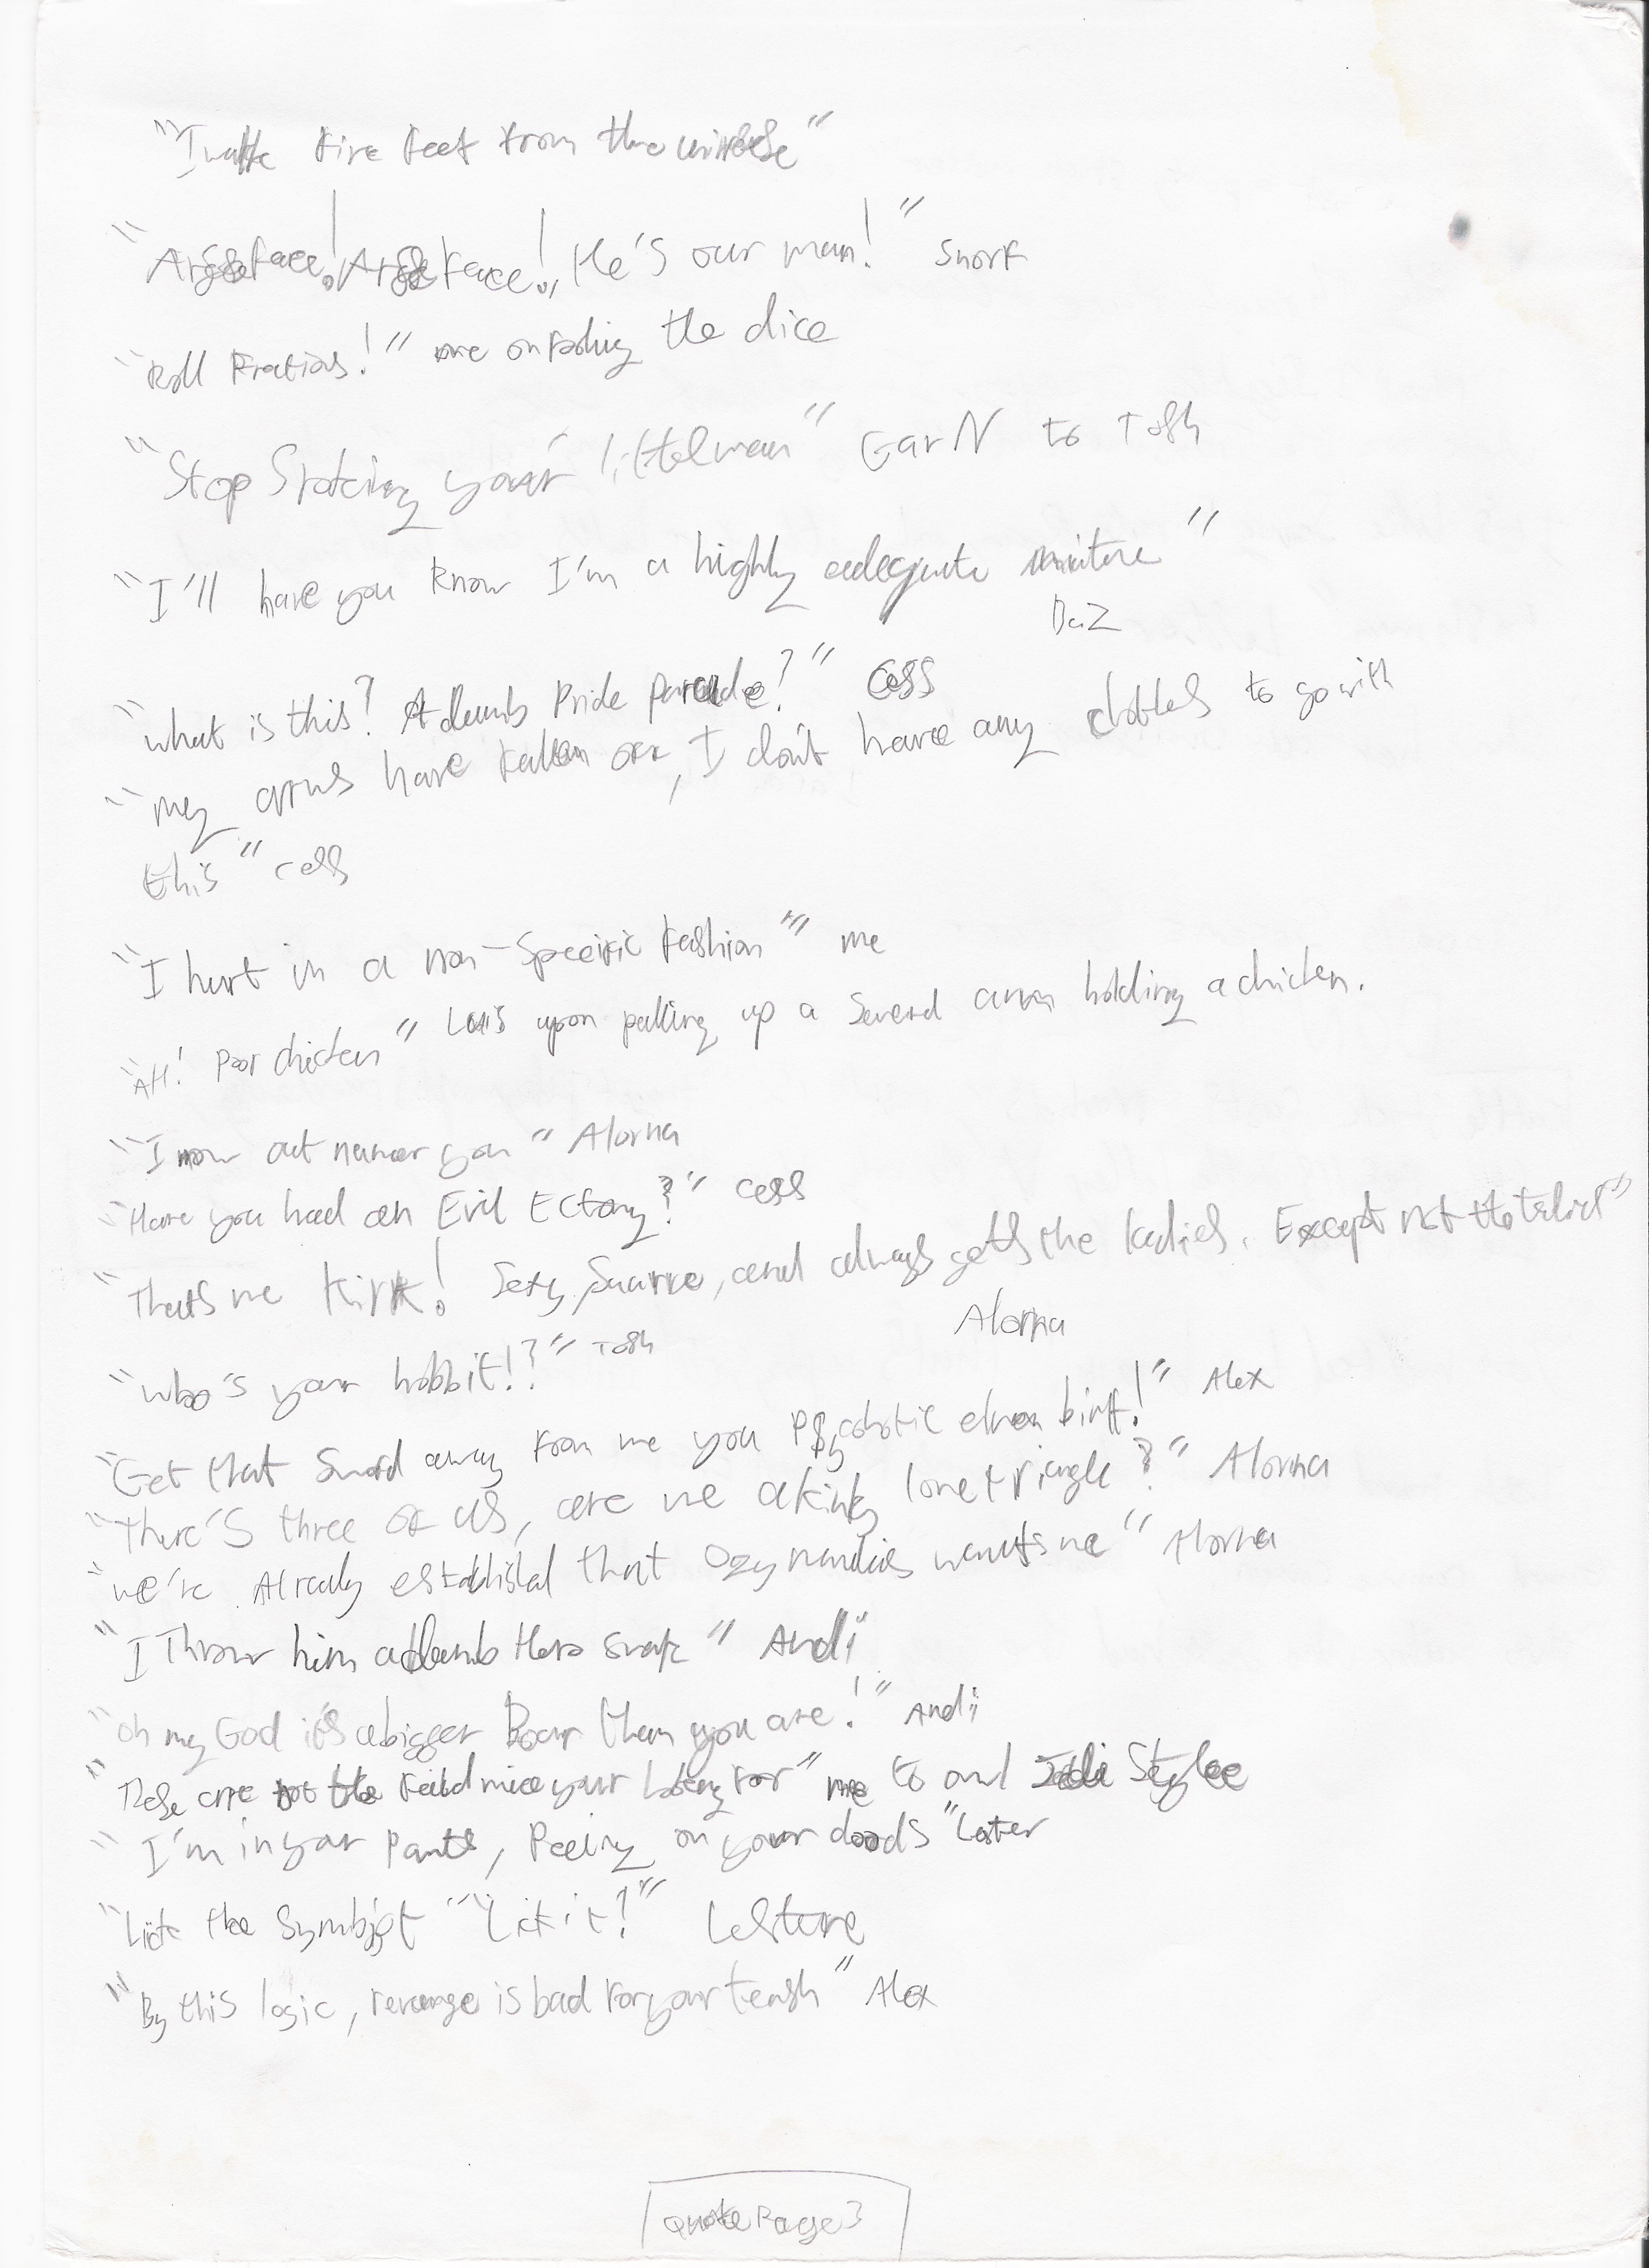 "I walk five feet from the universe"
"Arseface! Arseface! He's our man!" Snorf
"Roll Fractions!" me on failing the dice
"Stop your littelman" GarN to Tosh
"I'll have you know I'm a highly adequate
DaZ
"what is this? A dumb Pride Parade?" Cess
"my arms have fallen off, I don't have any clothes to go with
this" cess
"I hurt in a non-Specific fashion"" me
"AH! Poor chicken" upon pulling up a Severd arm holding a chicken.
"I now out you" Alorna
"Have you had an Evil Ectomy?" cess
"Thats me Kirk! Sexy, Suarve, and always gets the ladies. Except not the"
Alorna
"who's your hobbit!?" Tosh
"Get that Sword away from me you Psycohotic elven bint!" Alex
"There'S three of us, are we a kinky love triangle?" Alorna
"we're Already established that Ozymandias wants me" Alorna
"I Throw him a dumb Hero" Andi
"oh my God it's a bigger Boar then you are!" Andi
"These are not the feild mice your loking for" me to owl Jedi Stylee
"I'm in your Pants, Peeing on your doods" Later
"Lick the "Lick it!"
"By this logic, revenge is bad for your" Alex
Quote Page 3